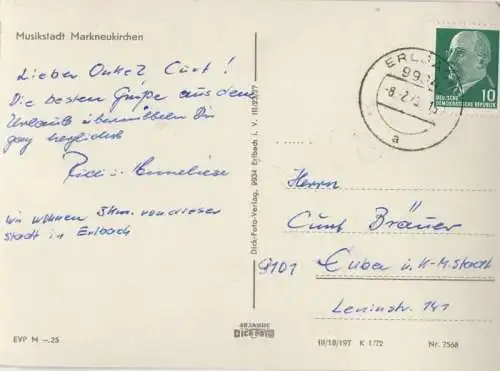 Musikstadt Markneukirchen
Lieber Onkel Curt!
Die besten Grüße aus dem
Urlaub übermitteln Dir
ganz herzlich
u. Anneliese
Wir wohnen 3km von dieser
Stadt in Erlbach
EVP M -.25
Dick-Foto-Verlag, 9934 Erlbach i. V. III/23/27
40 JAHRE
DICK FOTO
ERLBACH
9934
-8.2.72
a
DEUTSCHE
DEMOKRATISCHE REPUBLIK
10
Herrn
Curt Bräuer
9101 Euba ü. K-M-Stadt
Leninstr. 141
III/18/197 K 1/72 Nr. 7568